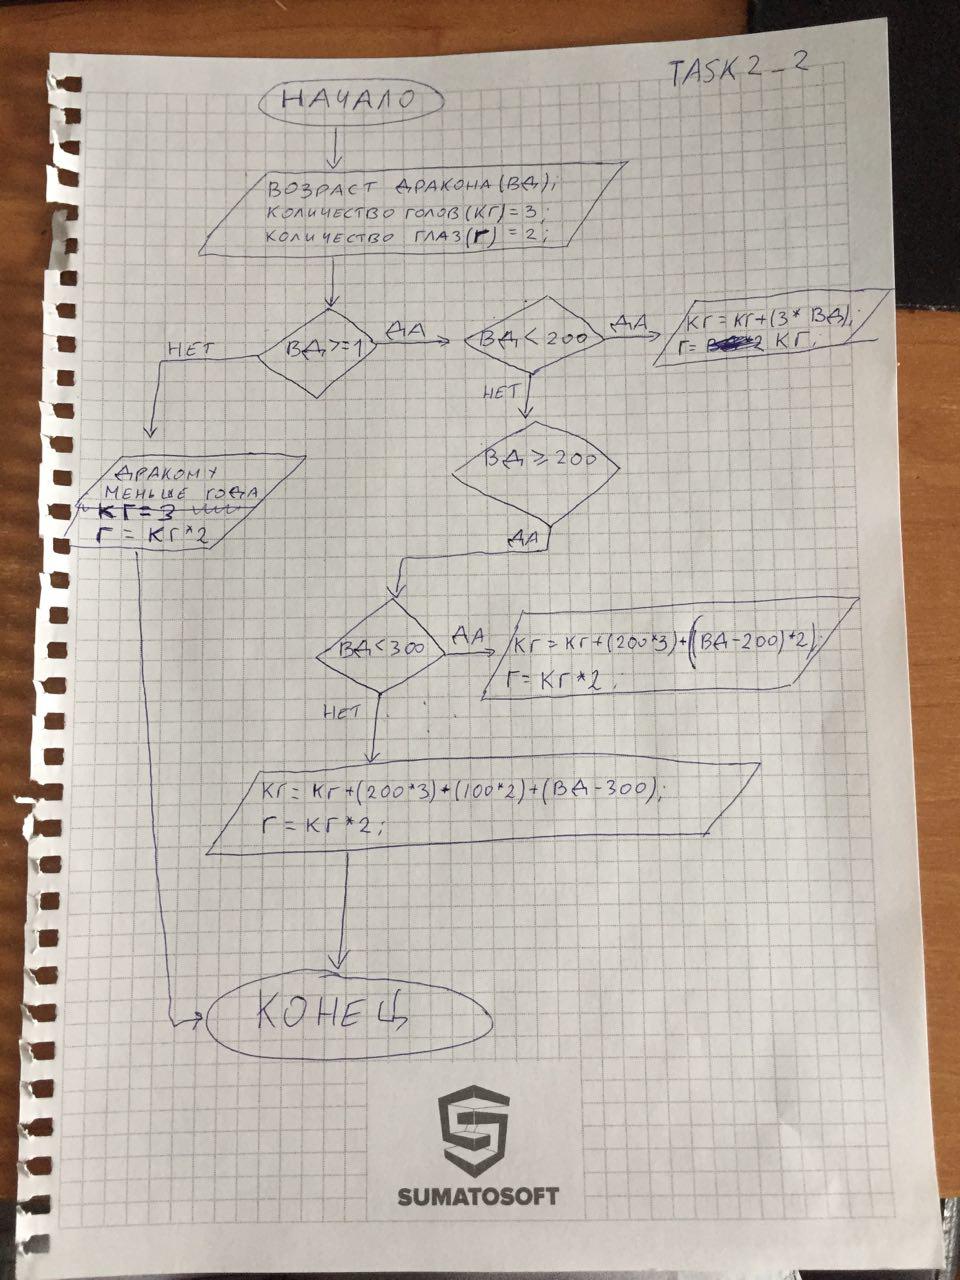 TASK 2_2
НАЧАЛО
ВОЗРАСТ ДРАКОНА (ВД);
КОЛИЧЕСТВО ГОЛОВ (КГ) = 3;
КОЛИЧЕСТВО ГЛАЗ (Г) = 2;
НЕТ
ВД >= 1
ДА
ВД < 200
ДА
КГ = КГ + (3 * ВД);
Г = КГ;
НЕТ
ВД ≥ 200
ДРАКОМУ
МЕНЬШЕ ГОДА
КГ = 3
Г = КГ*2
ДА
ВД < 300
ДА
КГ = КГ + (200*3) + ((ВД - 200) * 2);
Г = КГ * 2;
НЕТ
КГ = КГ + (200*3) + (100*2) + (ВД - 300);
Г = КГ * 2;
КОНЕЦ
SUMATOSOFT